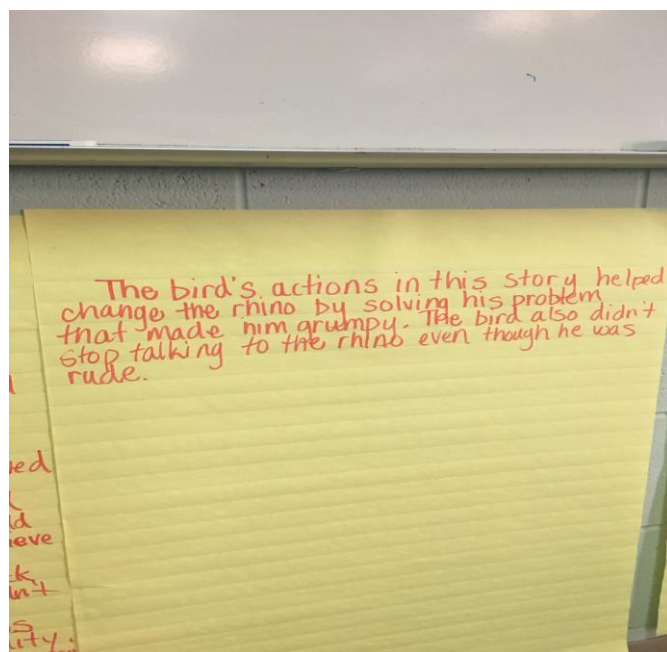 The bird's actions in this story helped
change the rhino by solving his problem
that made him grumpy. The bird also didn't
stop talking to the rhino even though he was
rude.
ieve